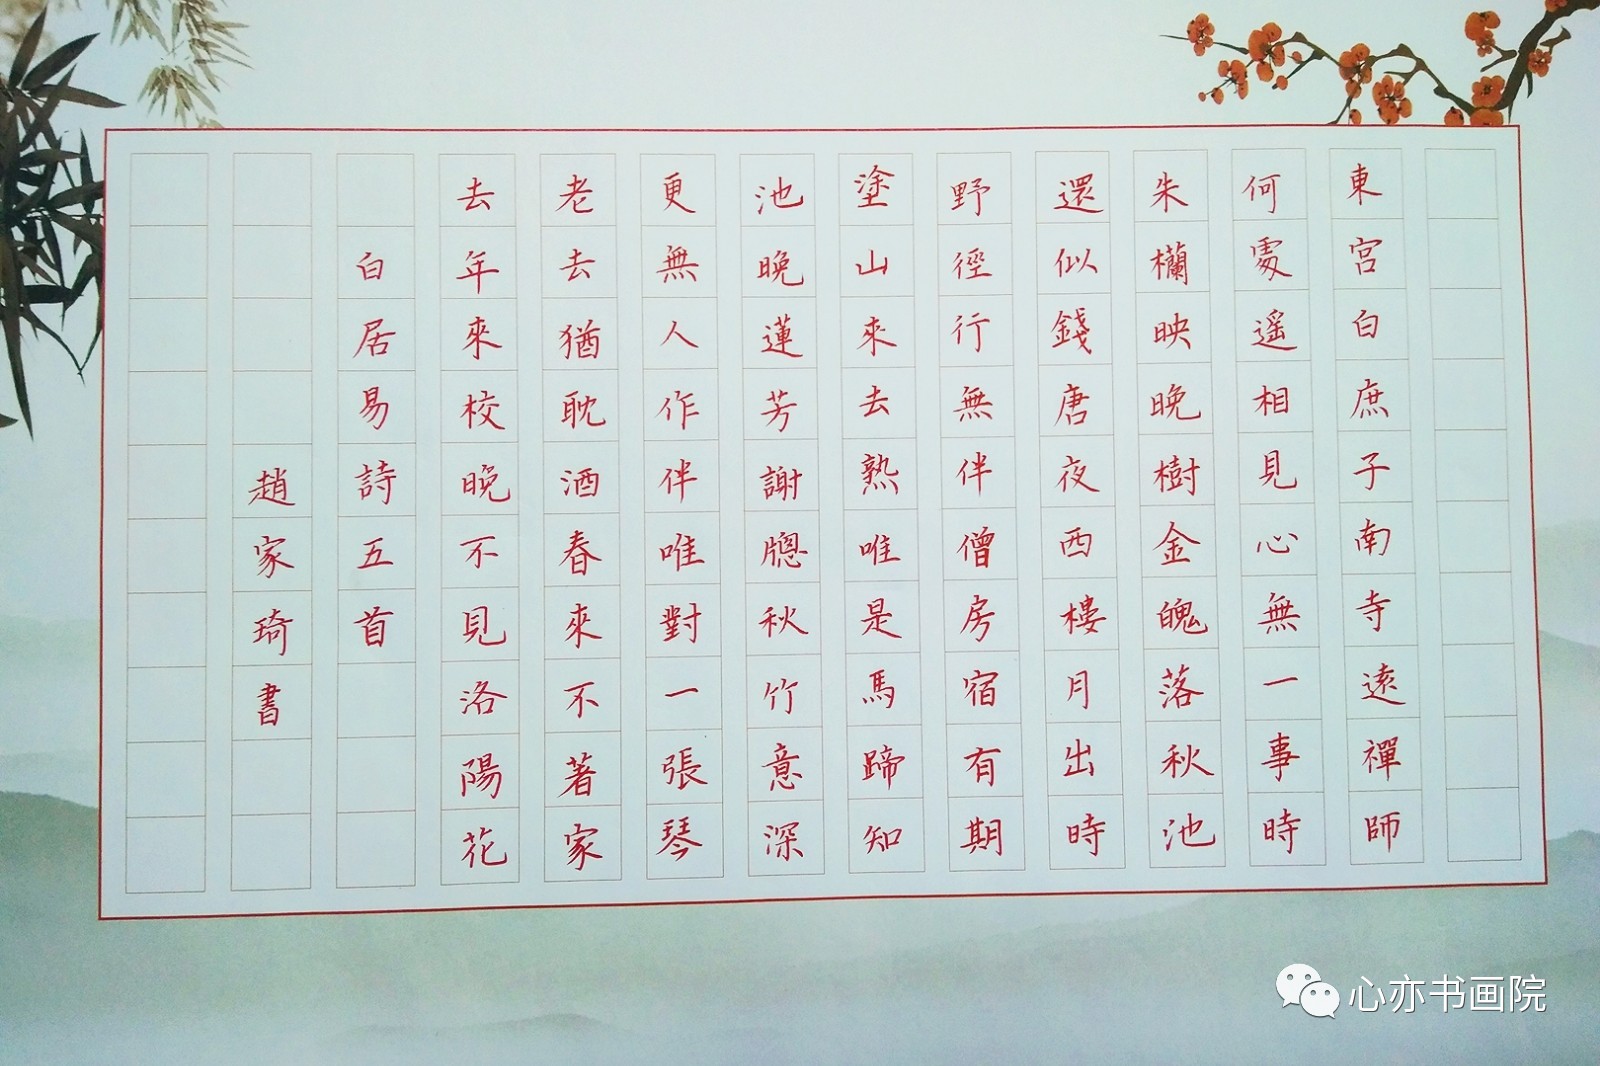 東宮白庶子南寺遠禪師
何處遥相見心無一事時
朱欄映晚樹金魄落秋池
還似錢唐夜西樓月出時
野徑行無伴僧房宿有期
塗山來去熟唯是馬蹄知
池晚蓮芳謝牎秋竹意深
更無人作伴唯對一張琴
老去猶耽酒春來不著家
去年來校晚不見洛陽花
白居易詩五首
趙家琦書
心亦书画院